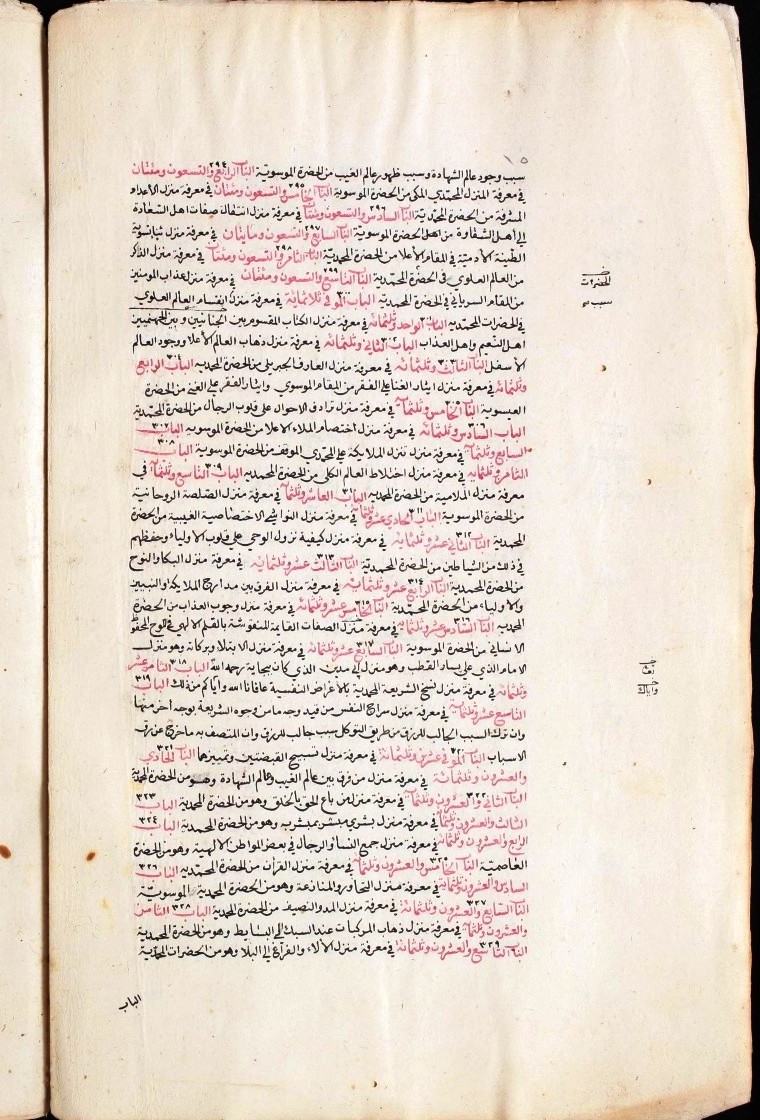 سبب وجود عالم الشهادة وسبب ظهور عالم الغيب من الحضرة الموسوية الباب الرابع والتسعون ومئتان ٢٩٤
في معرفة المنزل المحمدي المكي من الحضرة الموسوية الباب الخامس والتسعون ومئتان ٢٩٥ في معرفة منزل الأعداد
المشرفة من الحضرة المحمدية الباب السادس والتسعون ومئتان ٢٩٦ في معرفة منزل انتقال صفات اهل السعادة
إلى أهل الشقاوة من الحضرة الموسوية الباب السابع والتسعون ومايتان ٢٩٧ في معرفة منزل ثناء تسوية
الطينة الآدمية في المقام الأعلا من الحضرة المحمدية الباب الثامن والتسعون ومئتان ٢٩٨ في معرفة منزل الذكر
من العالم العلوي في الحضرة المحمدية الباب التاسع والتسعون ومئتان ٢٩٩ في معرفة منزل عذاب المومنين
من المقام السرياني في الحضرة المحمدية الباب الموفي ثلاثماية ٣٠٠ في معرفة منزل انقسام العالم العلوي
في الحضرات المحمدية الباب الواحد وثلثمائة ٣٠١ في معرفة منزل الكتاب المقسوم بين الجنانيين وبين الجهنميين
اهل النعيم واهل العذاب الباب الثاني وثلثمائة ٣٠٢ في معرفة منزل ذهاب العالم الأعلا ووجود العالم
الأسفل الباب الثالث وثلثمائة ٣٠٣ في معرفة منزل العارف الجبريلي من الحضرة المحمدية الباب الرابع ٣٠٤
وثلثمائة في معرفة منزل ايثار الغنا على الفقر من المقام الموسوي وايثار الفقر على الغنى من الحضرة
العيسوية الباب الخامس وثلثمائة ٣٠٥ في معرفة منزل ترادف الاحوال على قلوب الرجال من الحضرة المحمدية
الباب السادس وثلثمائة ٣٠٦ في معرفة منزل اختصام الملاء الاعلا من الحضرة الموسوية الباب ٣٠٧
السابع وثلثمائة في معرفة منزل تنزل الملايكة على المحمدي الموقف من الحضرة الموسوية الباب ٣٠٨
الثامن وثلثمايه في معرفة منزل اختلاط العالم الكلي من الحضرة المحمدية الباب التاسع وثلثمائة ٣٠٩ في
معرفة منزل الملامية من الحضرة المحمدية الباب العاشر وثلثمائة ٣١٠ في معرفة منزل الصلصلة الروحانية
من الحضرة الموسوية الباب الحادي عشر وثلثمائة ٣١١ في معرفة منزل النواشئ الاختصاصية الغيبية من الحضرة
المحمدية الباب الثاني عشر وثلثماية ٣١٢ في معرفة منزل كيفية نزول الوحي على قلوب الاولياء وحفظهم
في ذلك من الشياطين من الحضرة المحمدية الباب الثالث عشر وثلثماية ٣١٣ في معرفة منزل البكا والنوح
من الحضرة المحمدية الباب الرابع عشر وثلثمائة ٣١٤ في معرفة منزل الفرق بين مدارج الملايكة والنبيين
والاولياء من الحضرة المحمدية الباب الخامس عشر وثلثمائة ٣١٥ في معرفة منزل وجوب العذاب من الحضرة
المحمدية الباب السادس عشر وثلثمايه ٣١٦ في معرفة منزل الصفات القايمة المنقوشة بالقلم الالهي في اللوح المحفوظ
الانساني من الحضرة الموسوية الباب السابع عشر وثلثمائة ٣١٧ في معرفة منزل الابتلا وبركاته وهو منزل
الامام الذي على يسار القطب وهو منزل ابي مدين الذي كان ببجاية رحمه الله الباب الثامن عشر ٣١٨
وثلثمائة في معرفة منزل نسخ الشريعة المحمدية بالأغراض النفسية عافانا الله واياكم من ذلك الباب ٣١٩
التاسع عشر وثلثماية في معرفة منزل سراح النفس من قيد وجه ما من وجوه الشريعة بوجه اخر منها
وان ترك السبب الجالب للرزق من طريق التوكل سبب جالب للرزق وان المتصف به ما خرج عن رق
الاسباب الباب الموفي عشرين وثلثمائة ٣٢٠ في معرفة منزل تسبيح القبضتين وتمييزها الباب الحادي ٣٢١
والعشرون وثلثمائة في معرفة منزل من فرق بين عالم الغيب وعالم الشهادة وهو من الحضرة المحمدية
الباب الثاني والعشرون وثلثمائة ٣٢٢ في معرفة منزل من باع الحق بالخلق وهو من الحضرة المحمدية الباب ٣٢٣
الثالث والعشرون وثلثمائة في معرفة منزل بشرى مبشر بمبشر به وهو من الحضرة المحمدية الباب ٣٢٤
الرابع والعشرون وثلثمائة في معرفة منزل جمع النساء والرجال في بعض المواطن الالهية وهو من الحضرة
العاصمية الباب الخامس والعشرون وثلثمائة ٣٢٥ في معرفة منزل القرآن من الحضرة المحمدية الباب ٣٢٦
السادس والعشرون وثلثمائة في معرفة منزل التحاور والمنازعة وهو من الحضرة المحمدية الموسوية
الباب السابع والعشرون وثلثمائة ٣٢٧ في معرفة منزل المد والنصيف من الحضرة المحمدية الباب الثامن ٣٢٨
والعشرون وثلثمائة في معرفة منزل ذهاب المركبات عند السبك الى البسايط وهو من الحضرة المحمدية
الباب التاسع والعشرون وثلثمائة ٣٢٩ في معرفة منزل الآلاء والفراغ إلى البلا وهو من الحضرات المحمدية
الباب
الحضرات
واياك